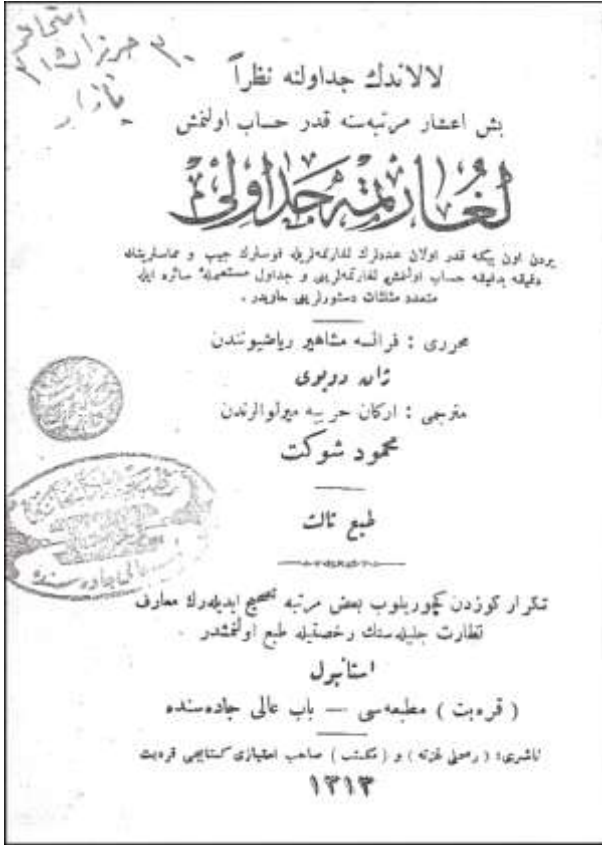 لالاندك جداولنه نظراً
بش اعشار مرتبه‌سنه قدر حساب اولنمش
لغاريتمه جداولى
بردن اون بيكه قدر اولان عددلرك لغارتمه‌لريله قوسلرك جيب و مماسلرينك
دقيقه بدقيقه حساب اولنمش لغارتمه‌لرينى و جداول مستعملهٔ سائره ايله
متعدد مثلثات دستورلرينى حاويدر .
محررى : فرانسه مشاهير رياضيونندن
ژان دوپوى
مترجمى : اركان حربيه ميرلوالرندن
محمود شوكت
طبع ثالث
تكرار كوزدن كچوريلوب بعض مرتبه تصحيح ايديله‌رك معارف
نظارت جليله‌سنك رخصتيله طبع اولنمشدر .
استانبول
( قره‌بت ) مطبعه‌سى — باب عالى جاده‌سنده
ناشرى : ( رسملى غزته ) و ( مكتب ) صاحب امتيازى كتابجى قره‌بت
١٣١٣